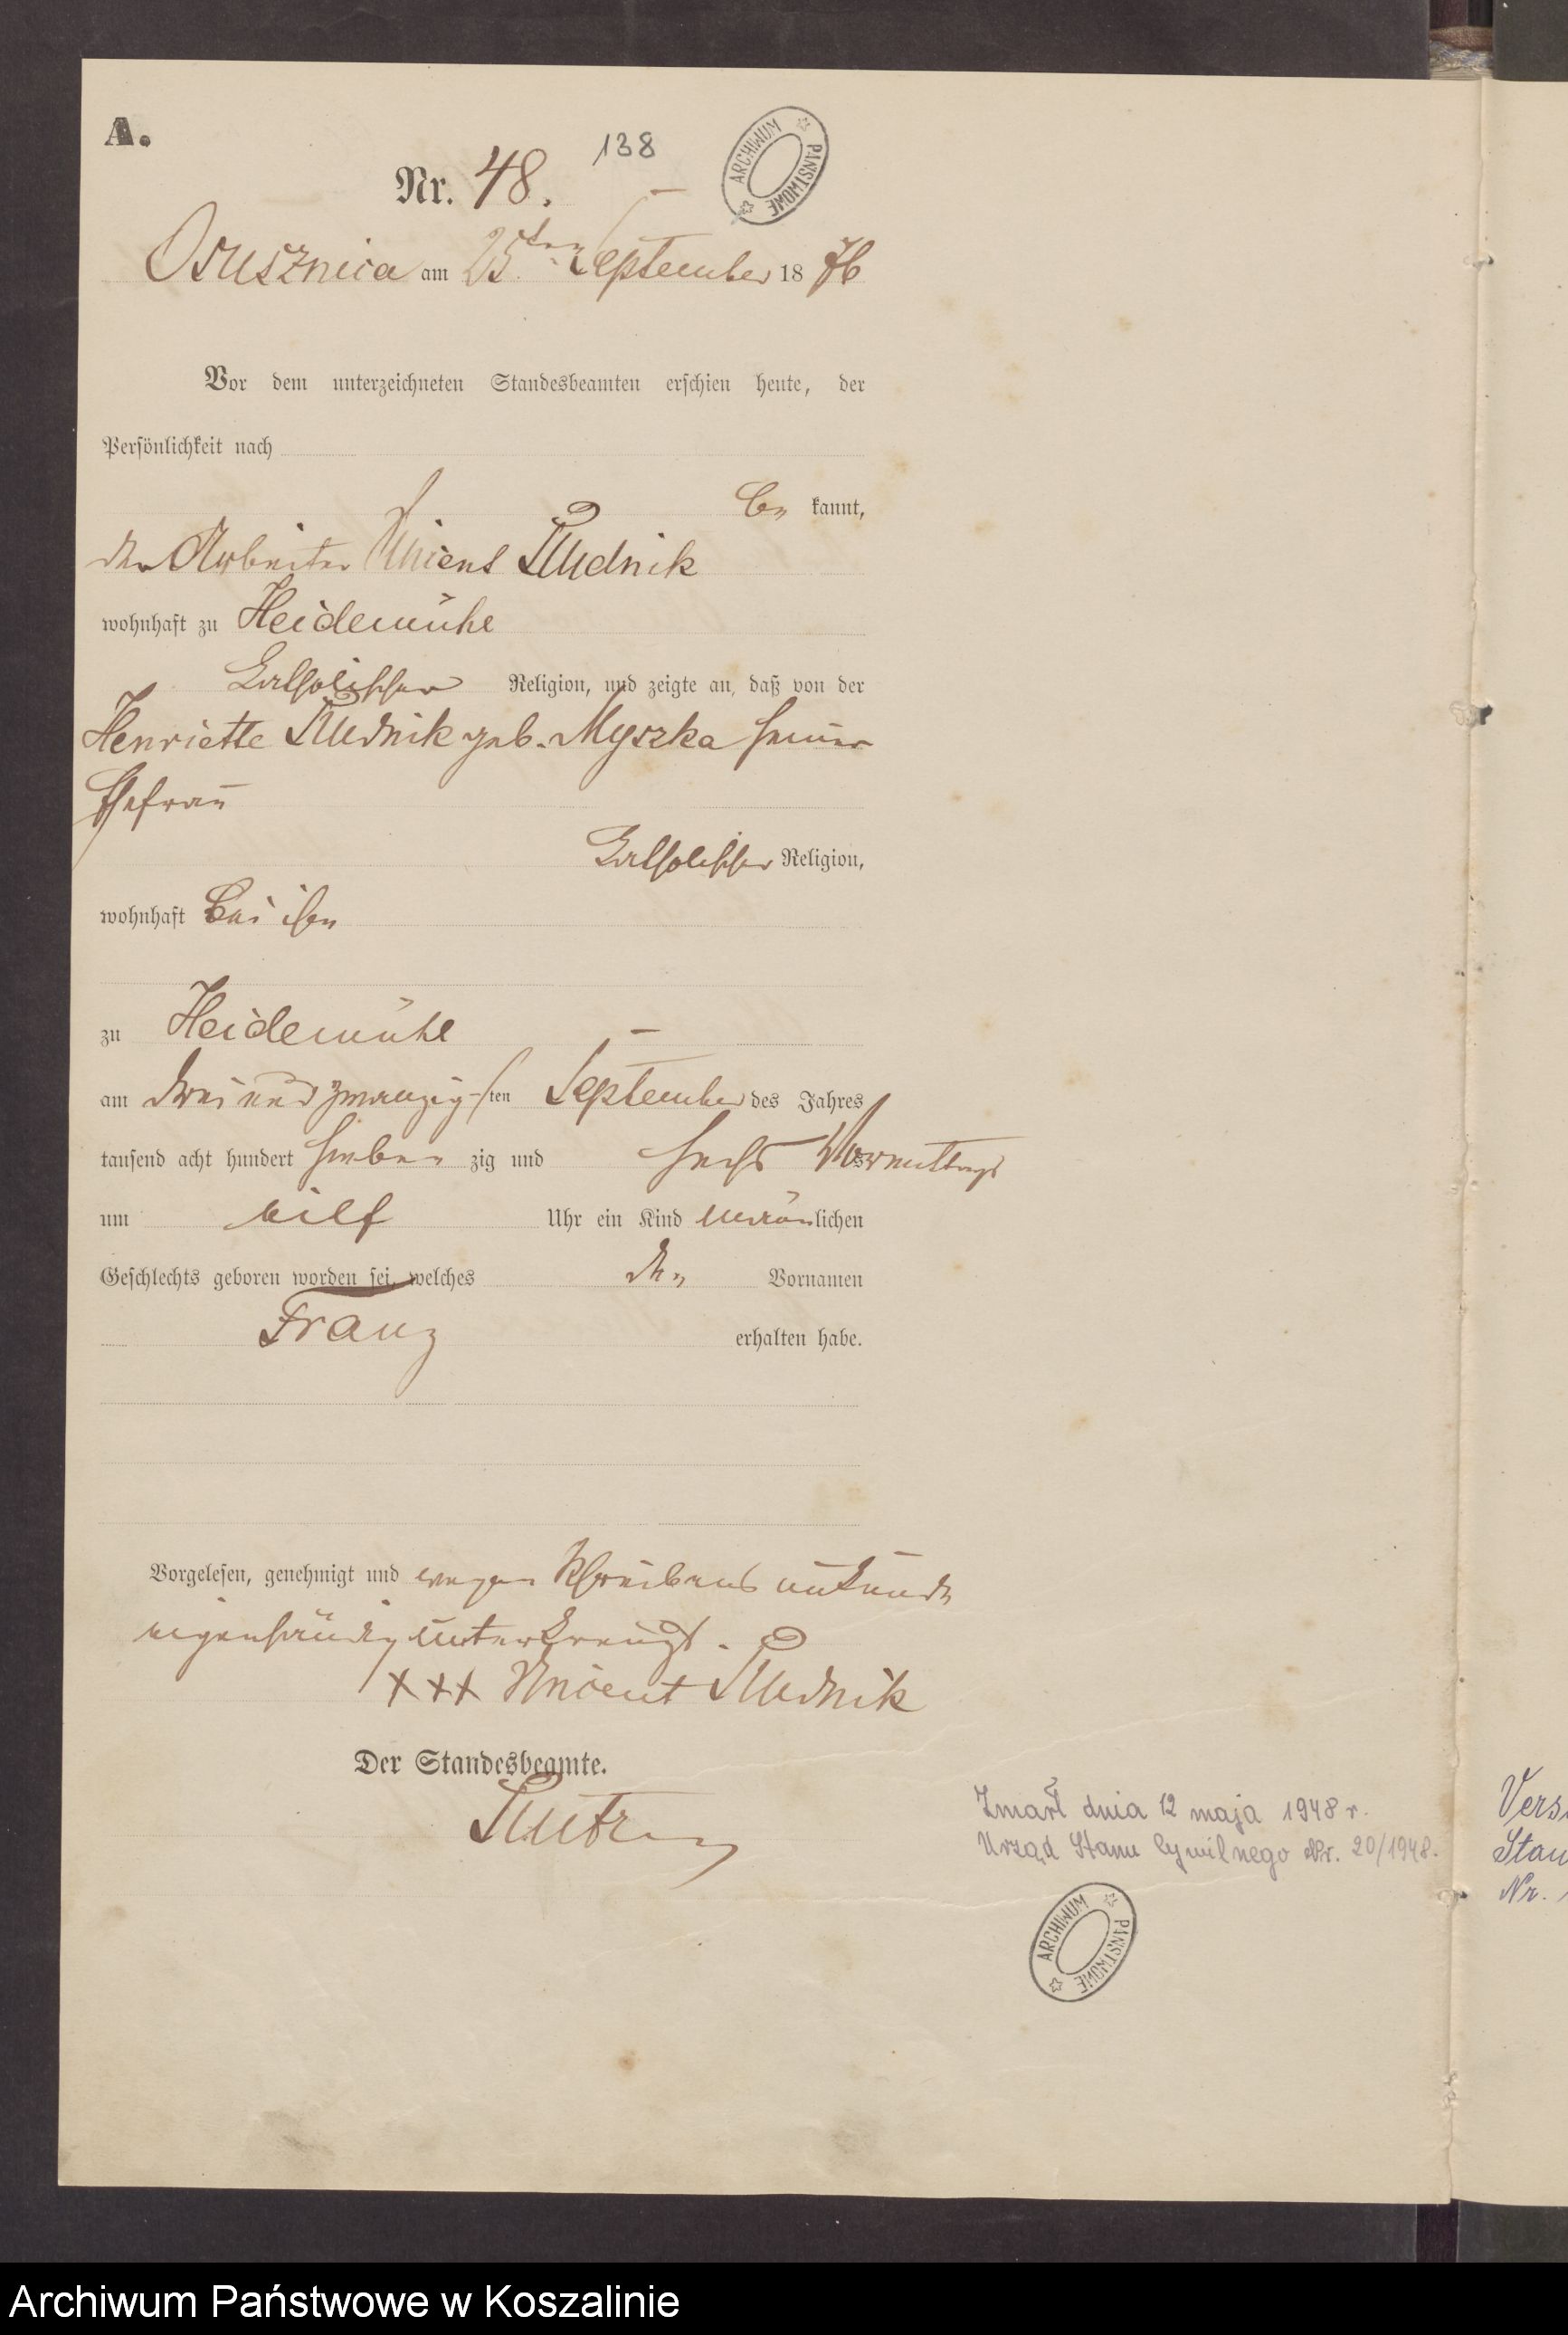 A.
138
ARCHIWUM PAŃSTWOWE
Nr. 48.
Ossusznica am 25ten September 1876
Vor dem unterzeichneten Standesbeamten erschien heute, der
Persönlichkeit nach
be kannt,
der Arbeiter Rudnik
wohnhaft zu Heidemühe
Katholischer Religion, und zeigte an, daß von der
Henriette Rudnik geb. Myszka seiner
Ehefrau
Katholischer Religion,
wohnhaft bei ihm
zu Heidemühl
am drei und zwanzigsten September des Jahres
tausend acht hundert sieben zig und sechs Vormittags
um eilf Uhr ein Kind männlichen
Geschlechts geboren worden sei, welches den Vornamen
Franz erhalten habe.
Vorgelesen, genehmigt und wegen Schreibens unkunde
eigenhändig unterkreuzt.
+++ Vincent Rudnik
Der Standesbeamte.
Zmarł dnia 12 maja 1948 r.
Urząd Stanu Cywilnego Nr. 20/1948.
ARCHIWUM PAŃSTWOWE
Vers
Stan
Nr.
Archiwum Państwowe w Koszalinie